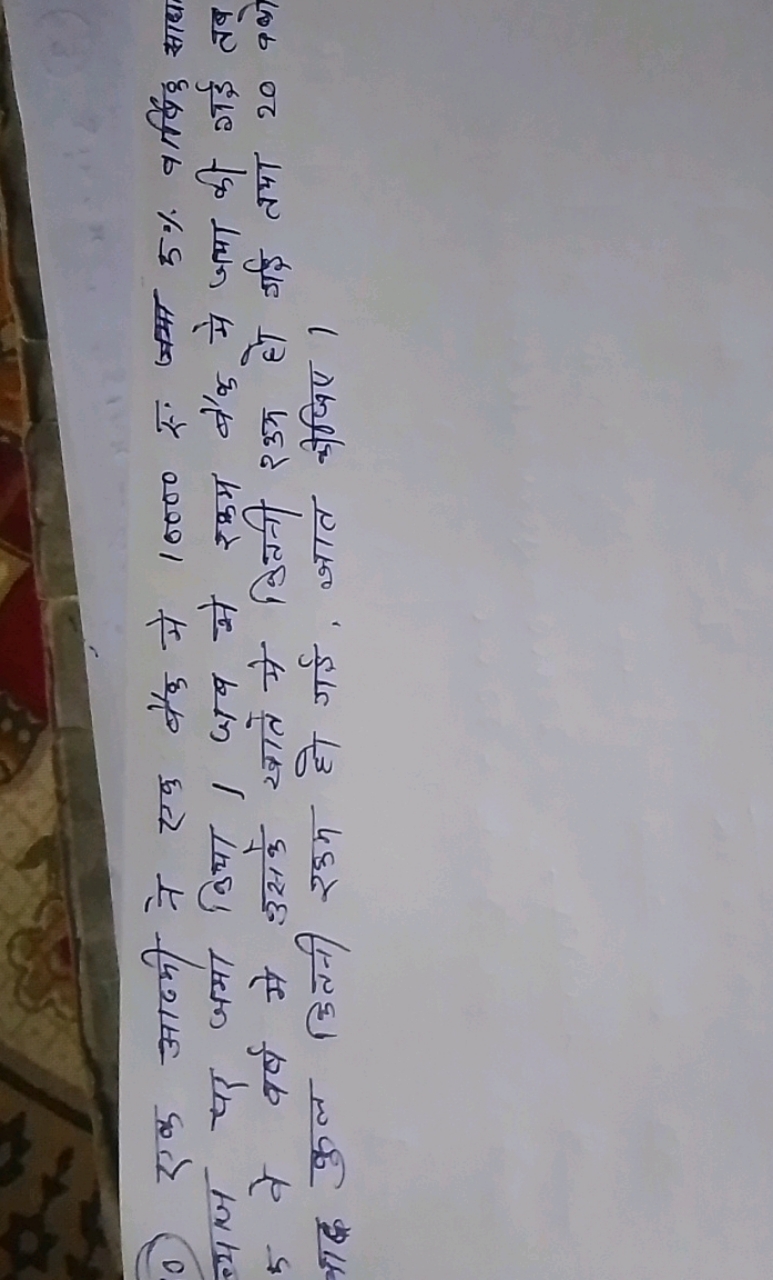 एक आदमी ने एक बैंक में 10000 रू. जमा 5% वार्षिक साधा
ब्याज पर जमा किया । जब से रकम बैंक में जमा की गई तब
5 वे वर्ष में उसके खाते में कितनी रकम हो गई तथा 20 वर्षो
बाद कुल कितनी रकम हो गई, ज्ञात कीजिए ।